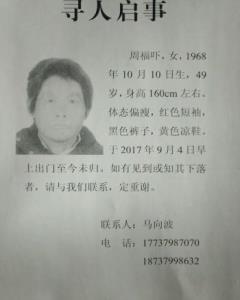 寻人启事
周福吓，女，1968
年 10 月 10 日生，49
岁，身高 160cm 左右。
体态偏瘦，红色短袖，
黑色裤子，黄色凉鞋。
于 2017 年 9 月 4 日早
上出门至今未归。如有见到或知其下落
者，请与我们联系，定重谢。
联系人：马向波
电  话：17737987070
18737998632